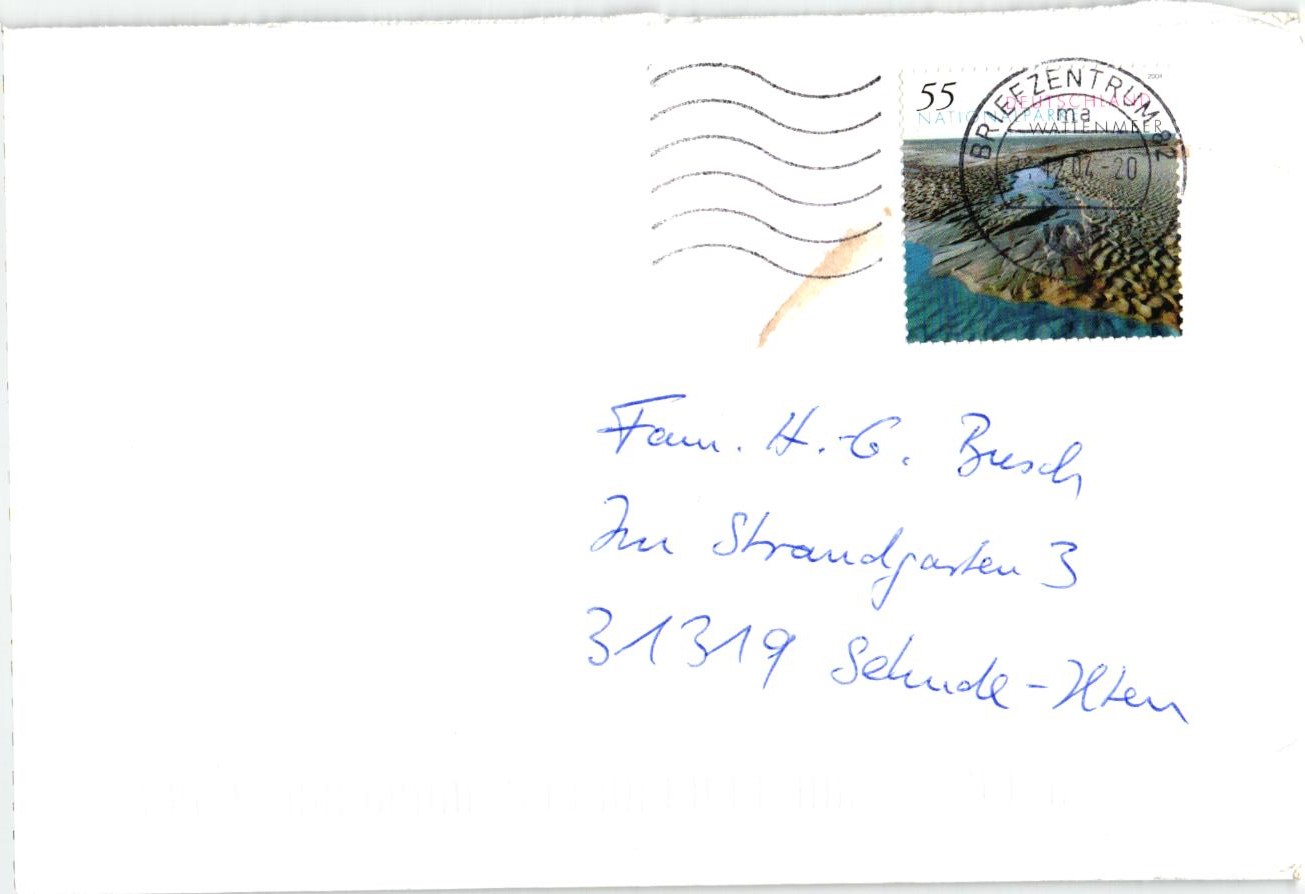 55
2004
DEUTSCHLAND
NATIONALPARKE
WATTENMEER
BRIEFZENTRUM 82
ma
12.04-20
Fam. H.-G. Busch
Im Strandgarten 3
31319 Sehnde-Ilten